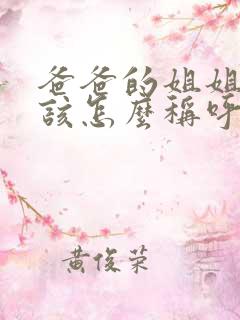 爸爸的姐姐
該怎麼稱呼
黃俊榮